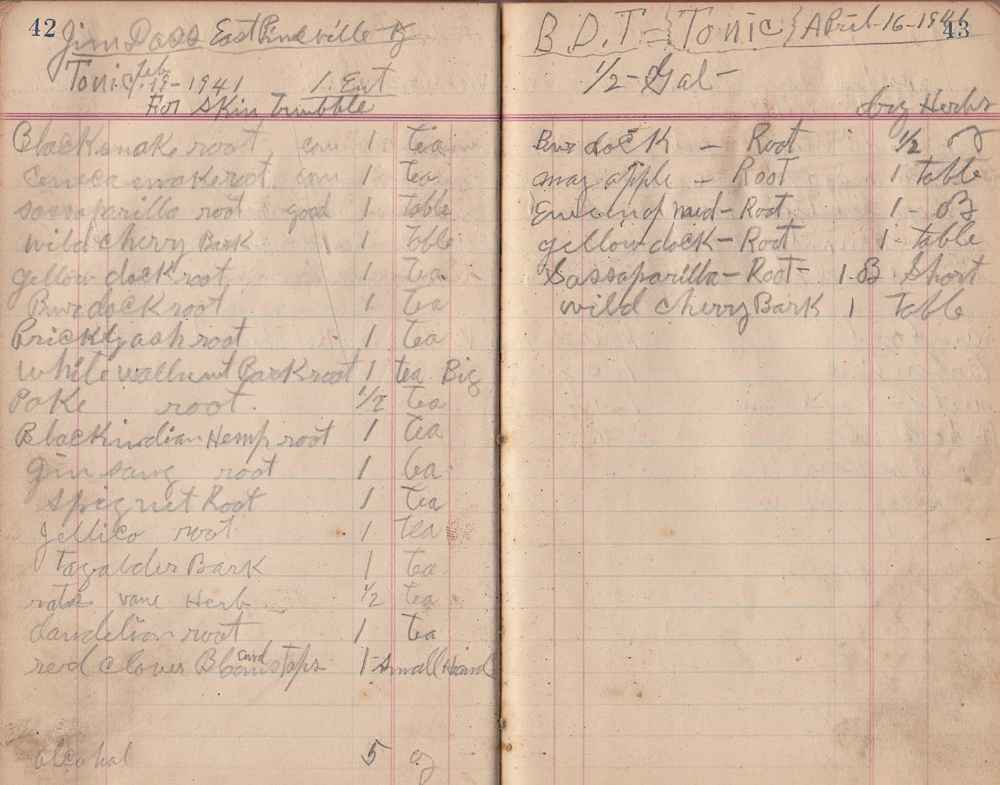 42
Jim Doss East Pineville Ky
Tonic Feb. 19-1941 1. Ent
For Skin Trubble
Blacksnake root 1 tea
Ceneca snakeroot 1 tea
sassaparilla root good 1 table
wild cherry Bark 1 Table
yellow dock root 1 Tea
Burdock root 1 tea
Pricklyash root 1 tea
White wallnut Bark root 1 tea Big
Poke root 1/2 tea
Black indian Hemp root 1 tea
Ginsang root 1 tea
Spignet Root 1 Tea
Jellico root 1 tea
Tagalder Bark 1 tea
vane Herb 1/2 tea
dandelion root 1 tea
red clover Bloms and tops 1-small Hand
alcohol 5 oz
43
B.D.T. = {Tonic} April-16-1941
1/2-Gal-
dry Herbs
Burdock - Root 1/2 oz
may apple - Root 1 table
Root 1-oz
yellow dock-Root 1-table
Sassaparilla-Root- 1-B Short
wild cherry Bark 1 Table